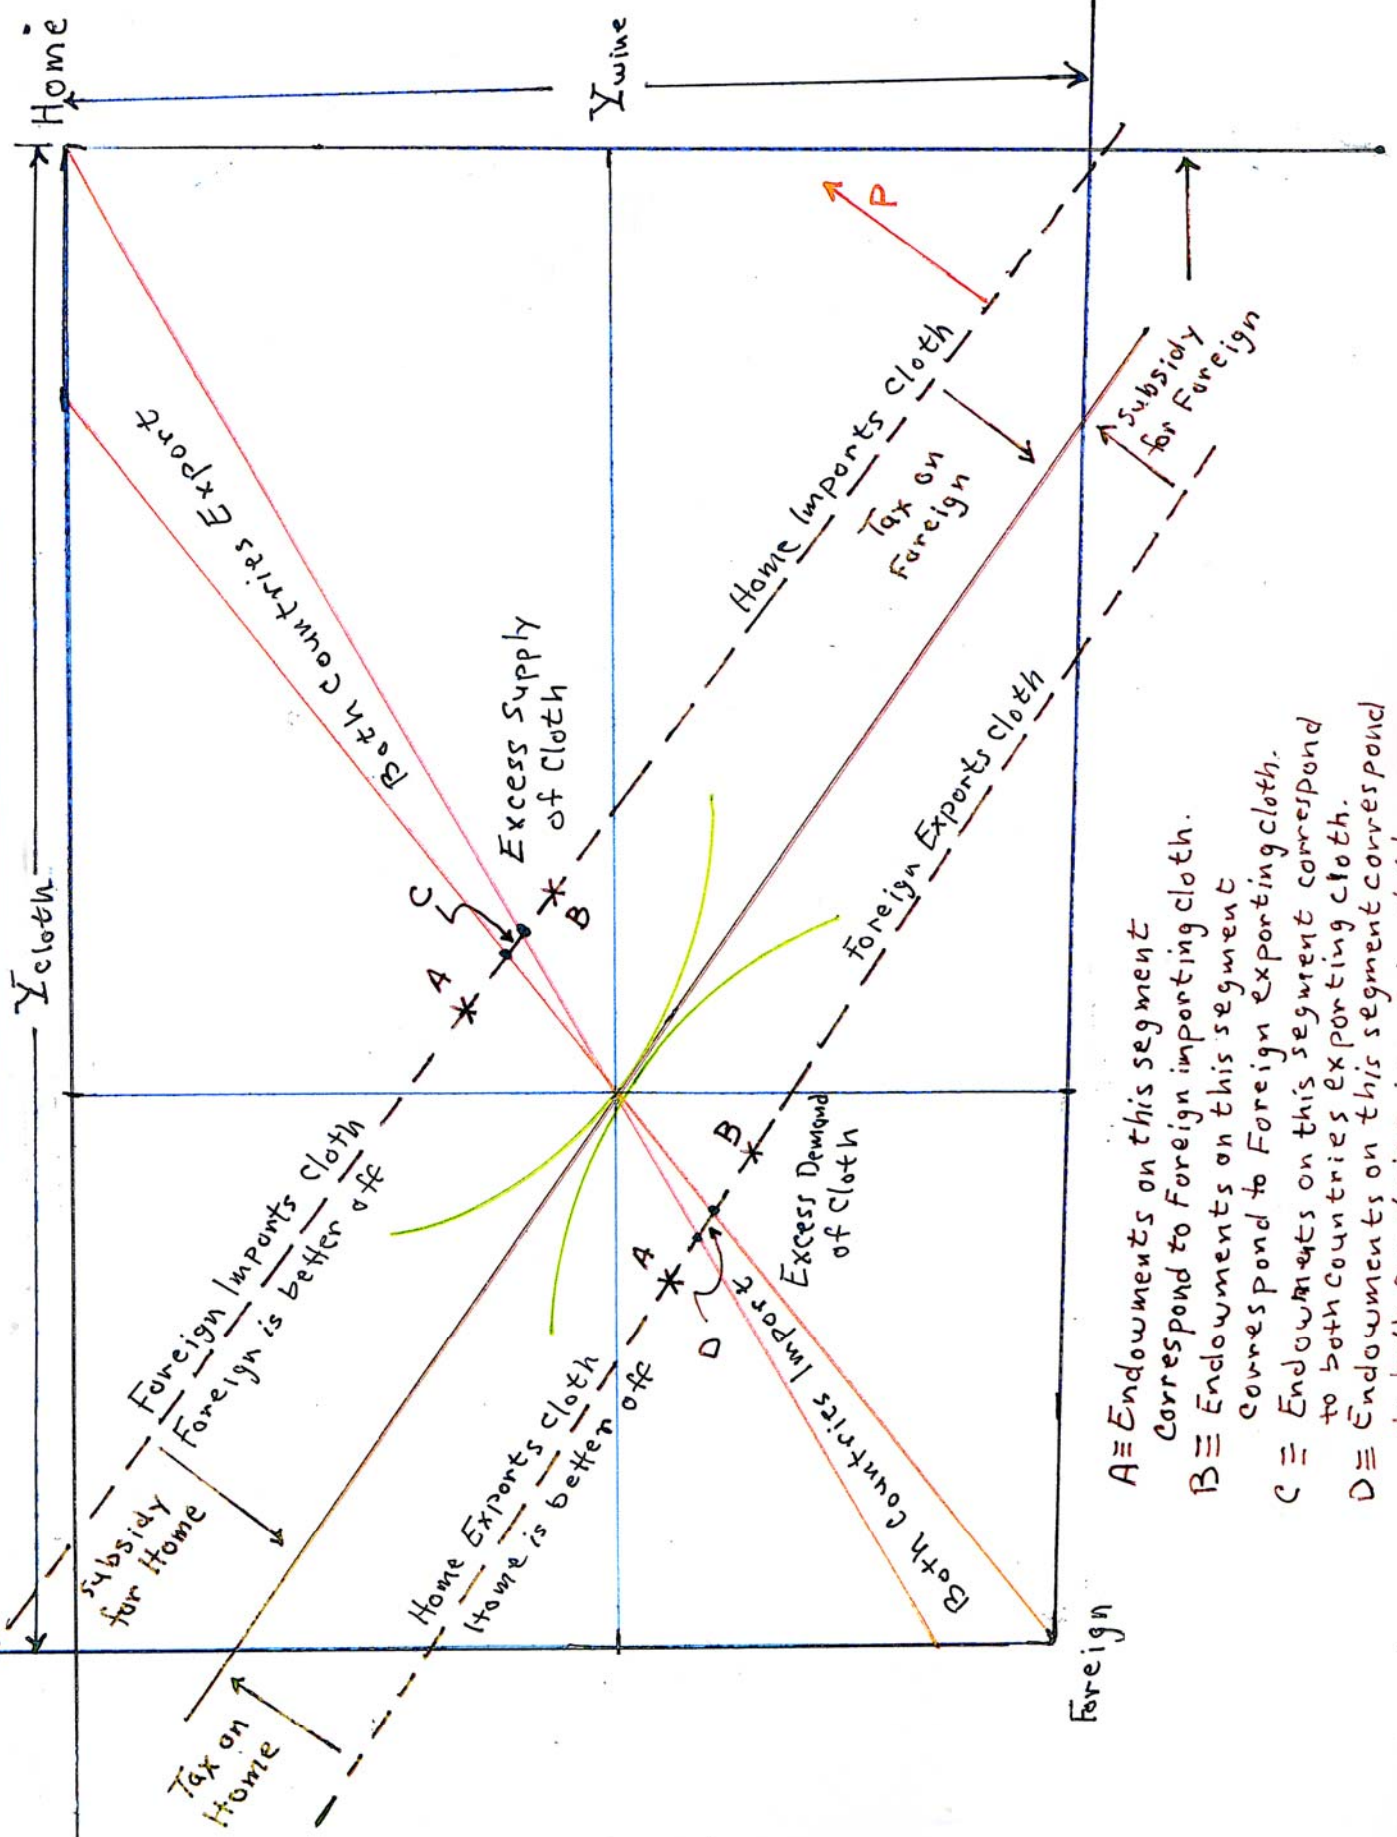 Home
Y̅cloth
Y̅wine
P
Both Countries Export
Excess Supply
of Cloth
C
A
B
Home Imports Cloth
Tax on
Foreign
Subsidy
for Foreign
Foreign Exports Cloth
Foreign Imports Cloth
Foreign is better off
Subsidy
for Home
Home Exports Cloth
Home is better off
Tax on
Home
A
B
D
Excess Demand
of Cloth
Both Countries Import
Foreign
A≡ Endowments on this segment
Correspond to Foreign importing cloth.
B≡ Endowments on this segment
Correspond to Foreign exporting cloth.
C≡ Endowments on this segment correspond
to both countries exporting cloth.
D≡ Endowments on this segment correspond